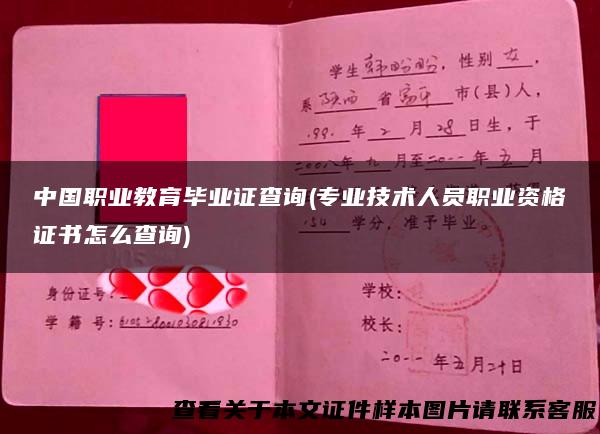 学生韩盼盼,性别女,
系陕西省富平市(县)人,
1991年2月28日生,于
二00八年九月至二0一一年五月
中国职业教育毕业证查询(专业技术人员职业资格
证书怎么查询)
154学分,准予毕业。
身份证号:
学籍号:
学校:
校长:
二0一一年五月二十日
查看关于本文证件样本图片请联系客服